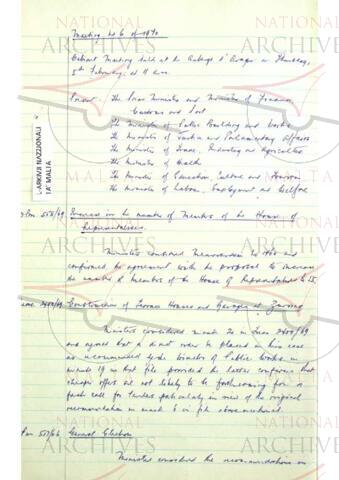 Meeting No 6 of 1970
Cabinet Meeting held at the Auberge d'Aragon on Thursday,
5th February, at 11 a.m.
Present. The Prime Minister and Minister of Finance
Customs and Port
The Minister of Public Building and Works
The Minister of Justice and Parliamentary Affairs
The Minister of Trade, Industry and Agriculture
The Minister of Health
The Minister of Education, Culture and Tourism
The Minister of Labour, Employment and Welfare
L-ARKIVJI NAZZJONALI
TA' MALTA
Increase in the number of Members of the House of
Representatives.
Ministers considered Memorandum No
confirmed the agreement with the proposal to increase
the number of Members of the House of Representatives to 55.
Construction of Terrace Houses and Garages at
Ministers considered minute 20 in
and agreed that a direct order be placed in this case
as recommended by the Director of Public Works in
minute 19 in that file provided the latter confirms that
cheaper offers are not likely to be forthcoming for a
fresh call for tenders particularly in view of the original
recommendation in minute 6 in file abovementioned.
General Election
Ministers considered the recommendations in
NATIONAL
ARCHIVES
MALTA